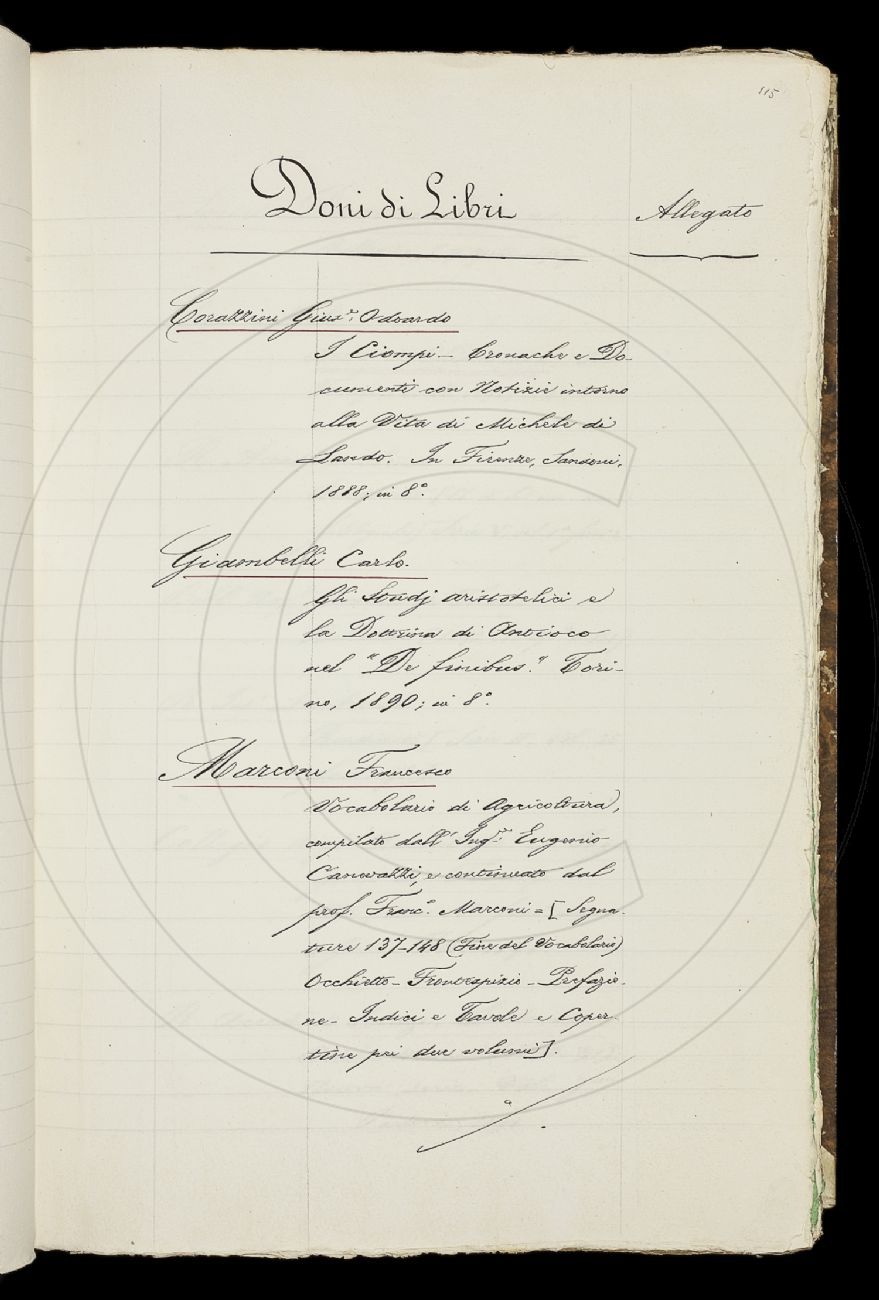 115
Doni di Libri
Allegato
Corazzini Gius.e Odoardo
I Ciompi – Cronache e Do-
cumenti con Notizie intorno
alla Vita di Michele di
Lando. In Firenze, Sansoni,
1888; in 8°.
Giambelli Carlo.
Gli Studj aristotelici e
la Dottrina di Antioco
nel "De finibus." Tori-
no, 1890; in 8°.
Marconi Francesco
Vocabolario di Agricoltura,
compilato dall' Ing.re Eugenio
Canevazzi, e continuato dal
prof. Franc.o Marconi = [Segna-
ture 137–148 (Fine del Vocabolario)
Occhietto – Frontespizio – Prefazio-
ne – Indici e Tavole e Coper-
tine pei due volumi].